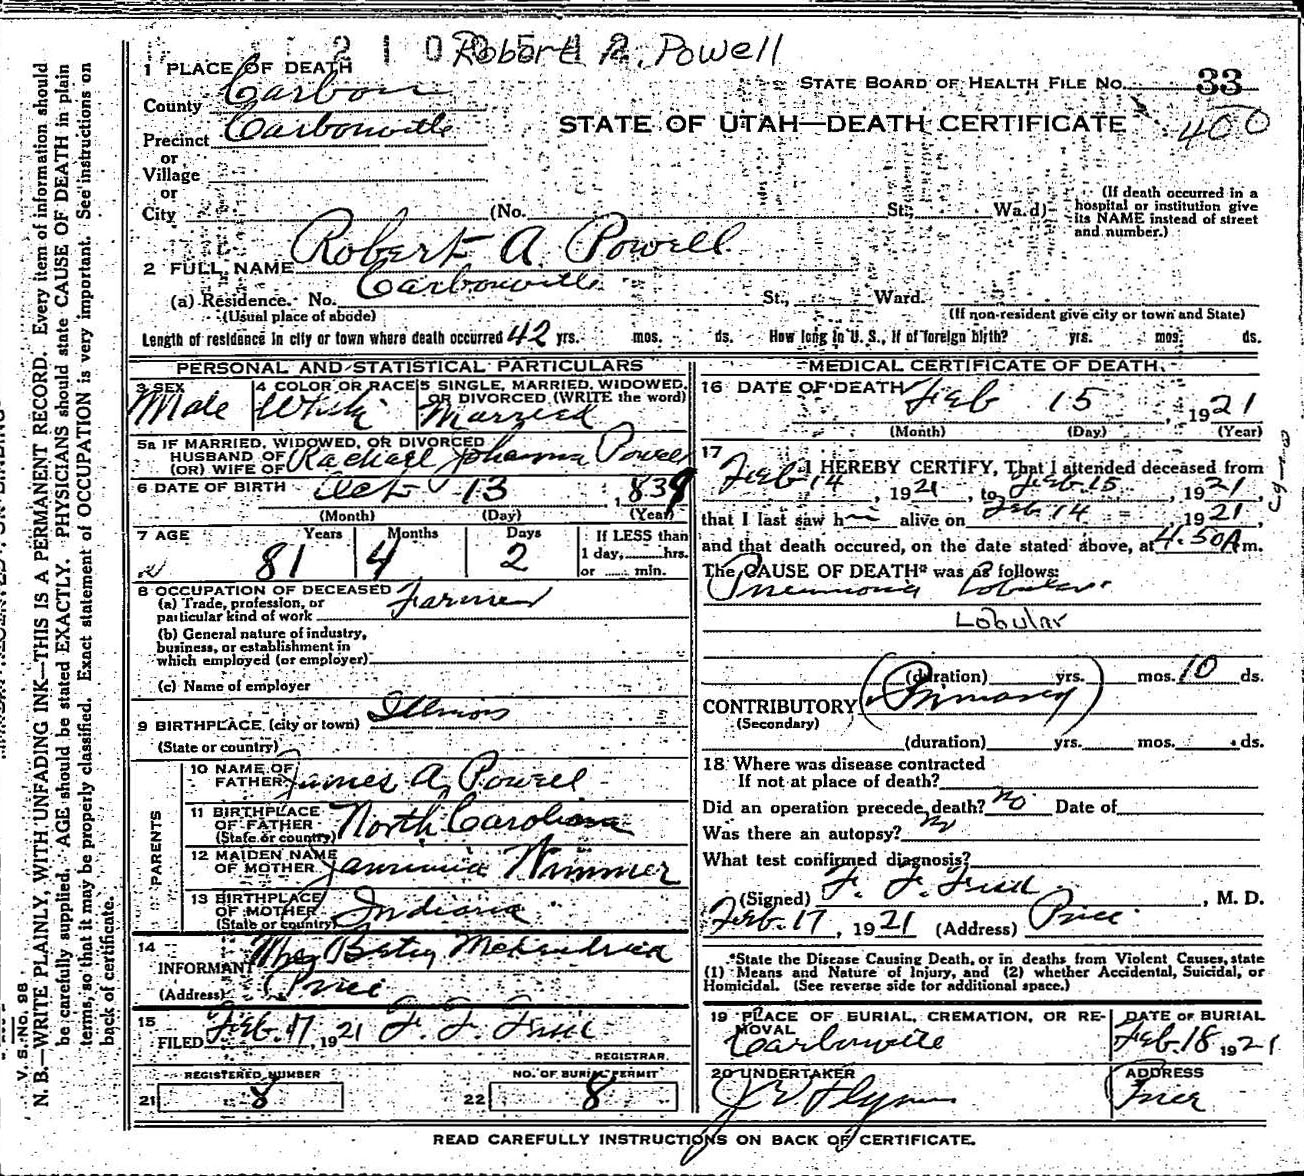 Robert A. Powell
1 PLACE OF DEATH
STATE BOARD OF HEALTH FILE No. 33
County Carbon
400
Precinct Carbonville
STATE OF UTAH—DEATH CERTIFICATE
or
Village
or
City (No. St. Ward)
(If death occurred in a hospital or institution give its NAME instead of street and number.)
2 FULL NAME Robert A Powell
(a) Residence. No. Carbonville St., Ward.
(Usual place of abode) (If non-resident give city or town and State)
Length of residence in city or town where death occurred 42 yrs. mos. ds. How long in U. S., if of foreign birth? yrs. mos. ds.
PERSONAL AND STATISTICAL PARTICULARS
3 SEX 4 COLOR OR RACE 5 SINGLE, MARRIED, WIDOWED, OR DIVORCED (WRITE the word)
Male White Married
5a IF MARRIED, WIDOWED, OR DIVORCED
HUSBAND OF
(OR) WIFE OF Rachael Johanna Powell
6 DATE OF BIRTH Oct 13, 1839
(Month) (Day) (Year)
7 AGE Years Months Days If LESS than
81 4 2 1 day, hrs.
or min.
8 OCCUPATION OF DECEASED
(a) Trade, profession, or
particular kind of work Farmer
(b) General nature of industry,
business, or establishment in
which employed (or employer)
(c) Name of employer
9 BIRTHPLACE (city or town) Illinois
(State or country)
PARENTS
10 NAME OF
FATHER James A Powell
11 BIRTHPLACE
OF FATHER North Carolina
(State or country)
12 MAIDEN NAME
OF MOTHER Wimmer
13 BIRTHPLACE
OF MOTHER Indiana
(State or country)
14
INFORMANT Betsy
(Address) Price
15
FILED Feb. 17, 1921 F. F.
REGISTRAR.
REGISTERED NUMBER NO. OF BURIAL PERMIT
21 8 22 8
MEDICAL CERTIFICATE OF DEATH
16 DATE OF DEATH Feb 15, 1921
(Month) (Day) (Year)
17
I HEREBY CERTIFY, That I attended deceased from
Feb 14, 1921, to Feb. 15, 1921,
that I last saw h alive on Feb 14 1921,
and that death occured, on the date stated above, at 4.50 A m.
The CAUSE OF DEATH* was as follows:
Pneumonia Lobular.
Lobular
(duration) yrs. mos. 10 ds.
CONTRIBUTORY (Primary)
(Secondary)
(duration) yrs. mos. ds.
18 Where was disease contracted
If not at place of death?
Did an operation precede death? No Date of
Was there an autopsy? No
What test confirmed diagnosis?
(Signed) F. F., M. D.
Feb. 17, 1921 (Address) Price
*State the Disease Causing Death, or in deaths from Violent Causes, state
(1) Means and Nature of Injury, and (2) whether Accidental, Suicidal, or
Homicidal. (See reverse side for additional space.)
19 PLACE OF BURIAL, CREMATION, OR RE- DATE OF BURIAL
MOVAL
Carbonville Feb. 18, 1921
20 UNDERTAKER ADDRESS
J E Flynn Price
READ CAREFULLY INSTRUCTIONS ON BACK OF CERTIFICATE.
V. S. No. 98
N. B.—WRITE PLAINLY, WITH UNFADING INK—THIS IS A PERMANENT RECORD. Every item of information should
be carefully supplied. AGE should be stated EXACTLY. PHYSICIANS should state CAUSE OF DEATH in plain
terms, so that it may be properly classified. Exact statement of OCCUPATION is very important. See instructions on
back of certificate.